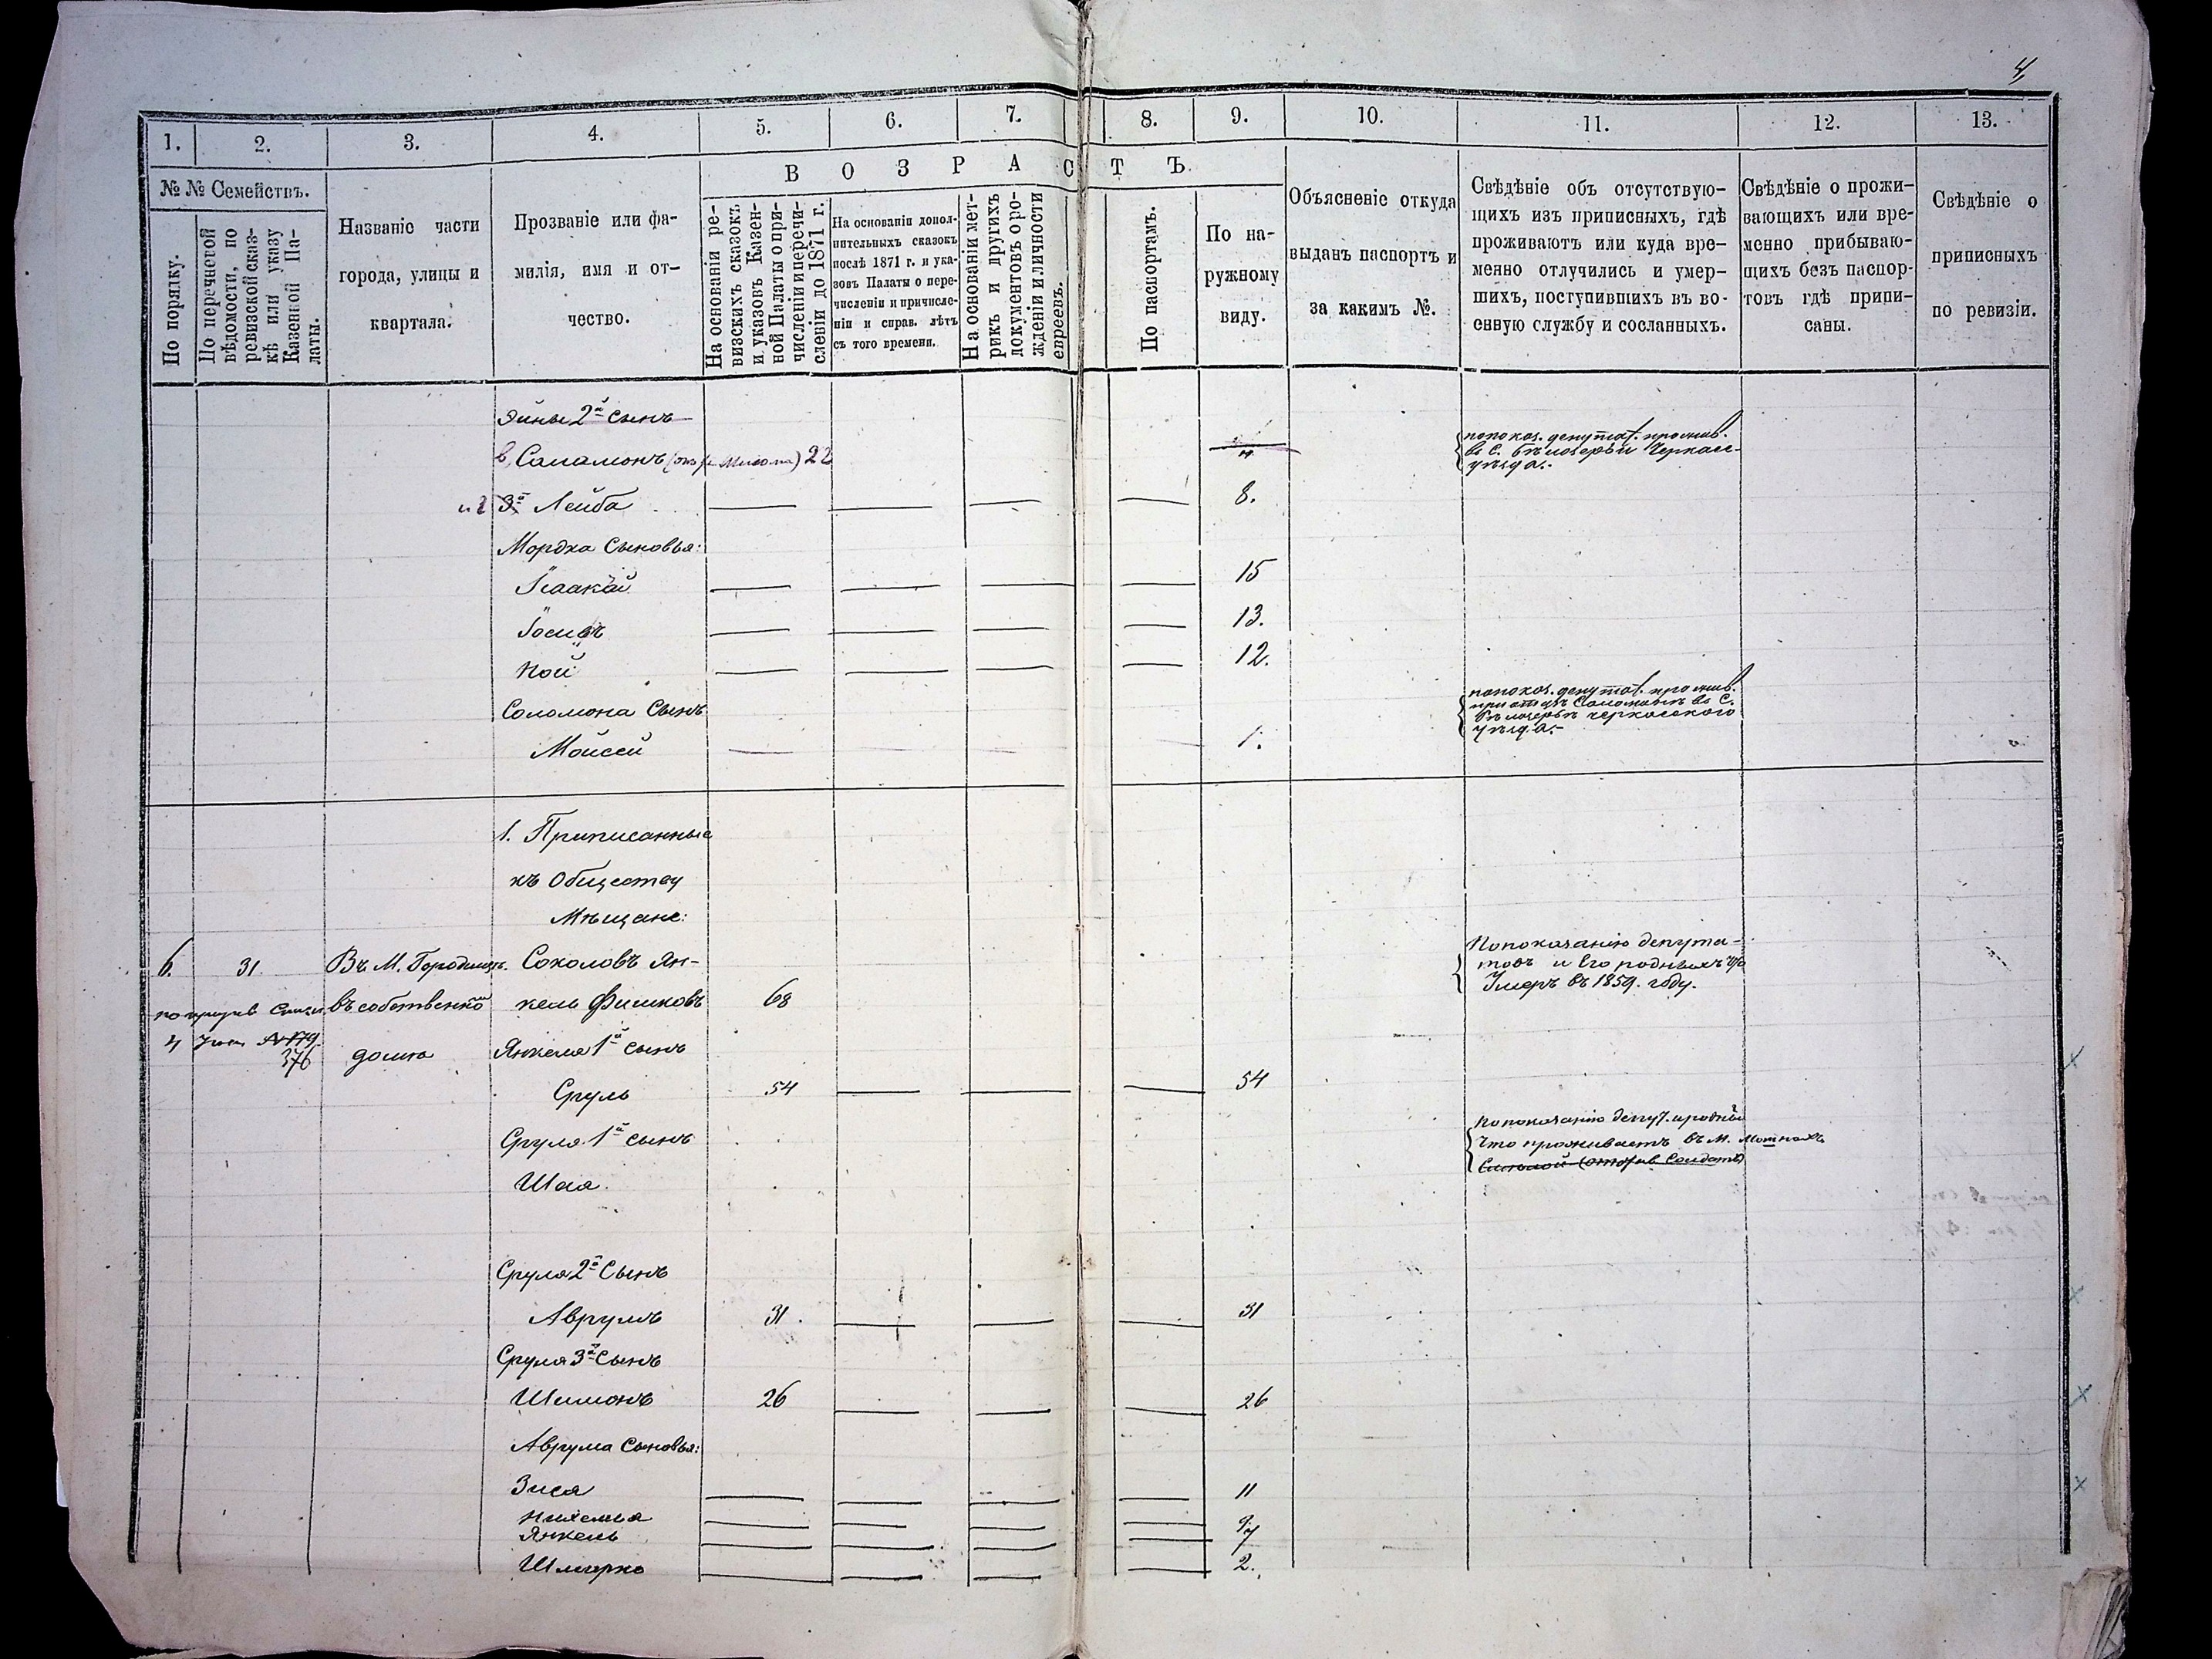 4
1. 2. 3. 4. 5. 6. 7. 8. 9. 10. 11. 12. 13.
№ № Семействъ.
По порядку.
По перечневой вѣдомости, по ревизской сказ-кѣ или указу Казенной Па-латы.
Названіе части
города, улицы и
квартала.
Прозваніе или фа-
милія, имя и от-
чество.
ВОЗРАСТЪ.
На основаніи ре-
визскихъ сказокъ
и указовъ Казен-
ной Палаты о при-
численіи и перечи-
сленіи до 1871 г.
На основаніи допол-
нительныхъ сказокъ
послѣ 1871 г. и ука-
зовъ Палаты о пере-
численіи и причисле-
ніи и справ. лѣтъ
съ того времени.
На основаніи мет-
рикъ и другихъ
документовъ о ро-
жденіи и личности
евреевъ.
По паспортамъ.
По на-
ружному
виду.
Объясненіе откуда
выданъ паспортъ и
за какимъ №.
Свѣдѣніе объ отсутствую-
щихъ изъ приписныхъ, гдѣ
проживаютъ или куда вре-
менно отлучились и умер-
шихъ, поступившихъ въ во-
енную службу и сосланныхъ.
Свѣдѣніе о прожи-
вающихъ или вре-
менно прибываю-
щихъ безъ паспор-
товъ гдѣ припи-
саны.
Свѣдѣніе о
приписныхъ
по ревизіи.
2й сынъ
Саламонъ 22
попоказ. депутат. прожив.
въ С. Бѣлозерьи Черкас-
уѣзда.-
3й Лейба 8.
Мордка Сыновья:
Ісаакій 15
Іосифъ 13.
Ной 12.
Соломона Сынъ
Мойсей 1.
попоказ. депутат. прожив.
при отцѣ Саломонѣ въ С.
Бѣлозерьѣ черкасского
уѣзда.-
1. Приписанные
къ Обществу
Мѣщане:
6. 31. Въ М. Городищѣ. Соколовъ Ян-
въ собственно кель Фишковъ 68
Попоказанію депута-
товъ и Его родныхъ что
Умеръ въ 1859. году.
376 домѣ Янкеля 1й сынъ
Сруль 54 54
Сруля 1й сынъ
Шая.
Попоказанію депут. и родныхъ
что проживаетъ въ М. Мошнахъ
Сруля 2й Сынъ
Аврумъ 31. 31
Сруля 3й Сынъ
Шимонъ 26 26
Аврума Сыновья:
Зися 11
Нихемья 9
Янкель 7
Шмерко 2.